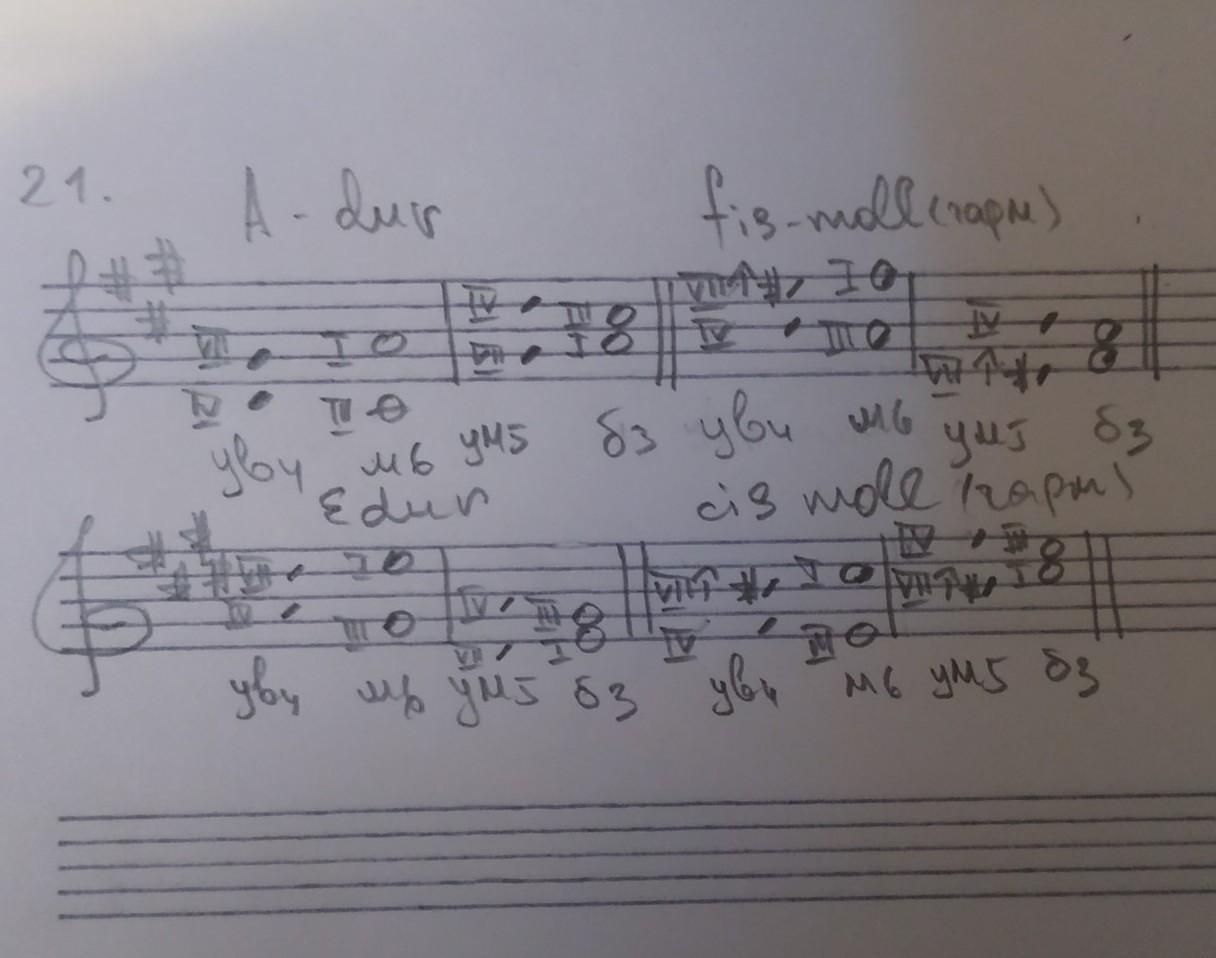 21. A-dur fis-moll (гарм)
VII I VI II VII I VI III VII↓ I VI III VI VII↓
VI III
ув4 м6 ум5 б3 ув4 м6 ум5 б3
Edur cis moll (гарм)
VI I III VI III VII I VI III I VII↓
ув4 м6 ум5 б3 ув4 м6 ум5 б3